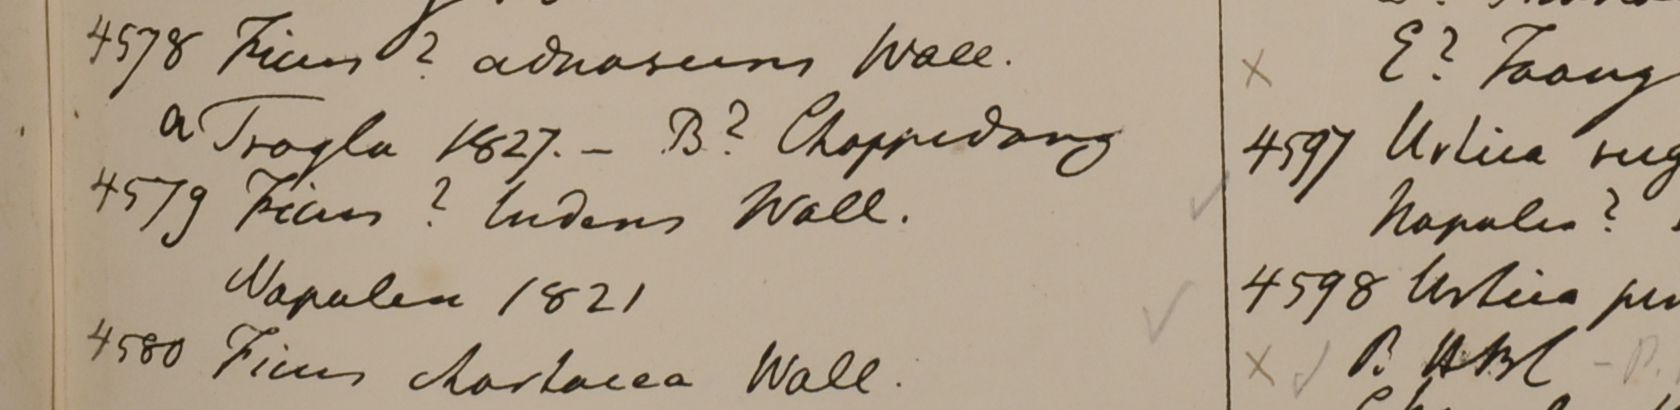 4578 Ficus ? adnascens Wall.
a Trogla 1827. — B? Choppedong
4579 Ficus ? ludens Wall.
Napalea 1821
4580 Ficus chartacea Wall.
E? Taong
4597 Urtica rug
Napalia ?
4598 Urtica pu
P. HBC